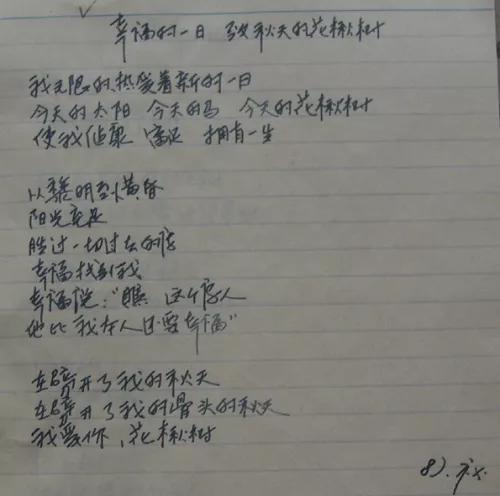 幸福的一日 致秋天的花楸树
我无限的热爱着新的一日
今天的太阳 今天的马 今天的花楸树
使我健康 富足 拥有一生
从黎明到黄昏
阳光充足
胜过一切过去的诗
幸福找到我
幸福说:“瞧 这个诗人
他比我本人还要幸福”
在劈开了我的秋天
在劈开了我的骨头的秋天
我爱你,花楸树